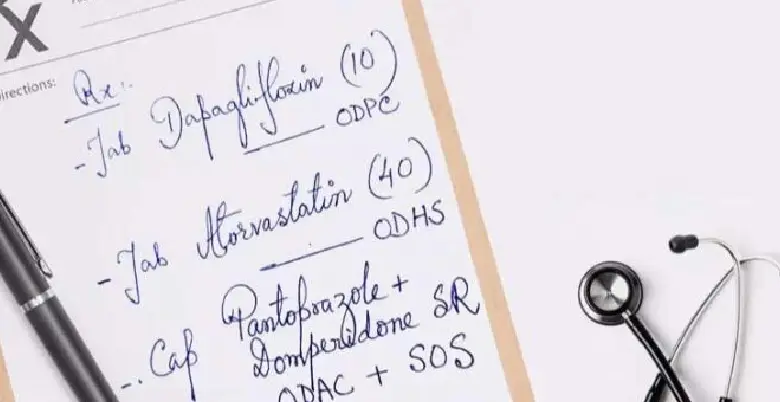 irections:
Rx:-
- Tab Dapagliflozin (10)
ODPC
- Tab Atorvastatin (40)
ODHS
- Cap Pantoprazole +
Domperidone SR
ODAC + SOS